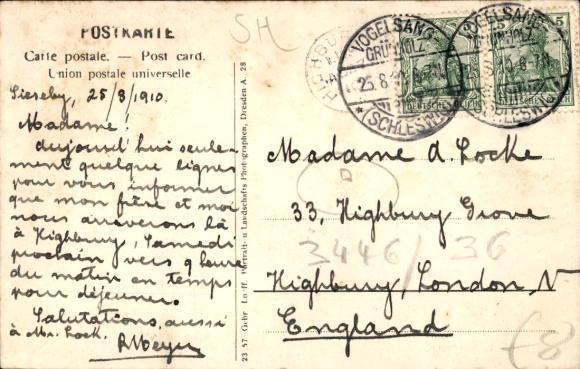 POSTKARTE
Carte postale. — Post card.
Union postale universelle
SH
Sieseby, 25/8/1910.
Madame!
aujourd'hui seule-
ment quelque lignes
pour vous informer
que mon frère et moi
nous arriverons là
à Highbury, Samedi
prochain vers 9 heure
du matin en temps
pour déjeuner.
Salutations, aussi
à Mr. Lock.
R Meyer
23 57 Gebr Portrait- u Landschafts Photographen, Dresden A. 28
VOGELSANG-
GRÜNHOLZ
25.8
* (SCHLESW.)
VOGELSANG-
GRÜNHOLZ
(SCHLESW.)
DEUTSCHES REICH
5
HIGHBURY
Madame A. Locke
D
33, Highbury Grove
3446/36
Highbury, London, N
England
£8